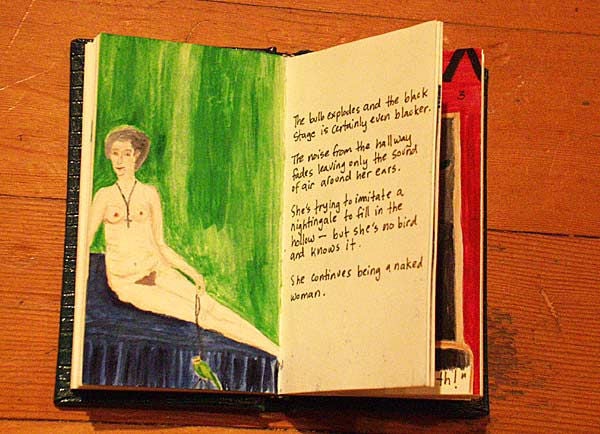 The bulb explodes and the black
stage is certainly even blacker.
The noise from the hallway
fades leaving only the sound
of air around her ears.
She's trying to imitate a
nightingale to fill in the
hollow — but she's no bird
and knows it.
She continues being a naked
woman.
3
th!"